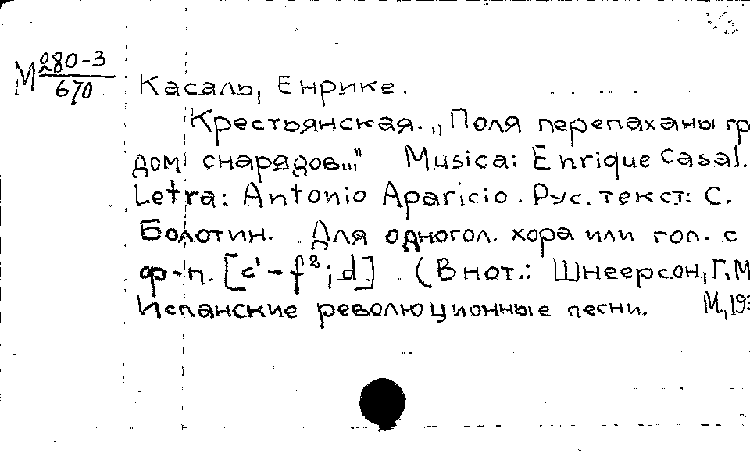 М 280-3
670
Касаль, Енрике.
Крестьянская. „Поля перепаханы гр
дом снарядов..." Musica: Enrique Casal.
Letra: Antonio Aparicio. Рус. текст: С.
Болотин. Для одногол. хора или гол. с
ф-п. [c¹-f²; d] (В нот.: Шнеерсон, Г. М
Испанские революционные песни. М, 193